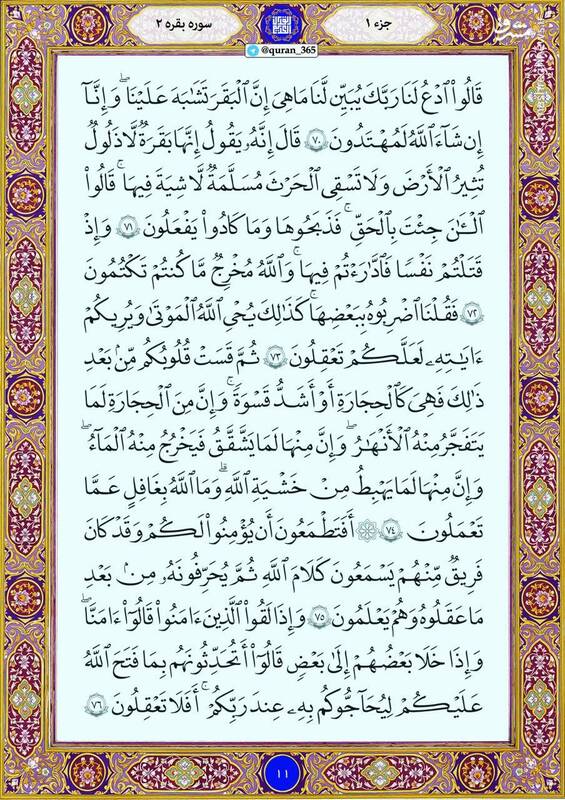 جزء ۱
سوره بقره ۲
@quran_365
مشرق
قَالُوا۟ ٱدْعُ لَنَا رَبَّكَ يُبَيِّن لَّنَا مَا هِىَ إِنَّ ٱلْبَقَرَ تَشَٰبَهَ عَلَيْنَا وَإِنَّآ
إِن شَآءَ ٱللَّهُ لَمُهْتَدُونَ ۷۰ قَالَ إِنَّهُۥ يَقُولُ إِنَّهَا بَقَرَةٌ لَّا ذَلُولٌ
تُثِيرُ ٱلْأَرْضَ وَلَا تَسْقِى ٱلْحَرْثَ مُسَلَّمَةٌ لَّا شِيَةَ فِيهَا ۚ قَالُوا۟
ٱلْـَٰٔنَ جِئْتَ بِٱلْحَقِّ ۚ فَذَبَحُوهَا وَمَا كَادُوا۟ يَفْعَلُونَ ۷۱ وَإِذْ
قَتَلْتُمْ نَفْسًا فَٱدَّٰرَْٰٔتُمْ فِيهَا ۖ وَٱللَّهُ مُخْرِجٌ مَّا كُنتُمْ تَكْتُمُونَ
۷۲ فَقُلْنَا ٱضْرِبُوهُ بِبَعْضِهَا ۚ كَذَٰلِكَ يُحْىِ ٱللَّهُ ٱلْمَوْتَىٰ وَيُرِيكُمْ
ءَايَٰتِهِۦ لَعَلَّكُمْ تَعْقِلُونَ ۷۳ ثُمَّ قَسَتْ قُلُوبُكُم مِّنۢ بَعْدِ
ذَٰلِكَ فَهِىَ كَٱلْحِجَارَةِ أَوْ أَشَدُّ قَسْوَةً ۚ وَإِنَّ مِنَ ٱلْحِجَارَةِ لَمَا
يَتَفَجَّرُ مِنْهُ ٱلْأَنْهَٰرُ ۚ وَإِنَّ مِنْهَا لَمَا يَشَّقَّقُ فَيَخْرُجُ مِنْهُ ٱلْمَآءُ ۚ
وَإِنَّ مِنْهَا لَمَا يَهْبِطُ مِنْ خَشْيَةِ ٱللَّهِ ۗ وَمَا ٱللَّهُ بِغَٰفِلٍ عَمَّا
تَعْمَلُونَ ۷۴ ۞ أَفَتَطْمَعُونَ أَن يُؤْمِنُوا۟ لَكُمْ وَقَدْ كَانَ
فَرِيقٌ مِّنْهُمْ يَسْمَعُونَ كَلَٰمَ ٱللَّهِ ثُمَّ يُحَرِّفُونَهُۥ مِنۢ بَعْدِ
مَا عَقَلُوهُ وَهُمْ يَعْلَمُونَ ۷۵ وَإِذَا لَقُوا۟ ٱلَّذِينَ ءَامَنُوا۟ قَالُوٓا۟ ءَامَنَّا
وَإِذَا خَلَا بَعْضُهُمْ إِلَىٰ بَعْضٍ قَالُوٓا۟ أَتُحَدِّثُونَهُم بِمَا فَتَحَ ٱللَّهُ
عَلَيْكُمْ لِيُحَآجُّوكُم بِهِۦ عِندَ رَبِّكُمْ ۚ أَفَلَا تَعْقِلُونَ ۷۶
۱۱